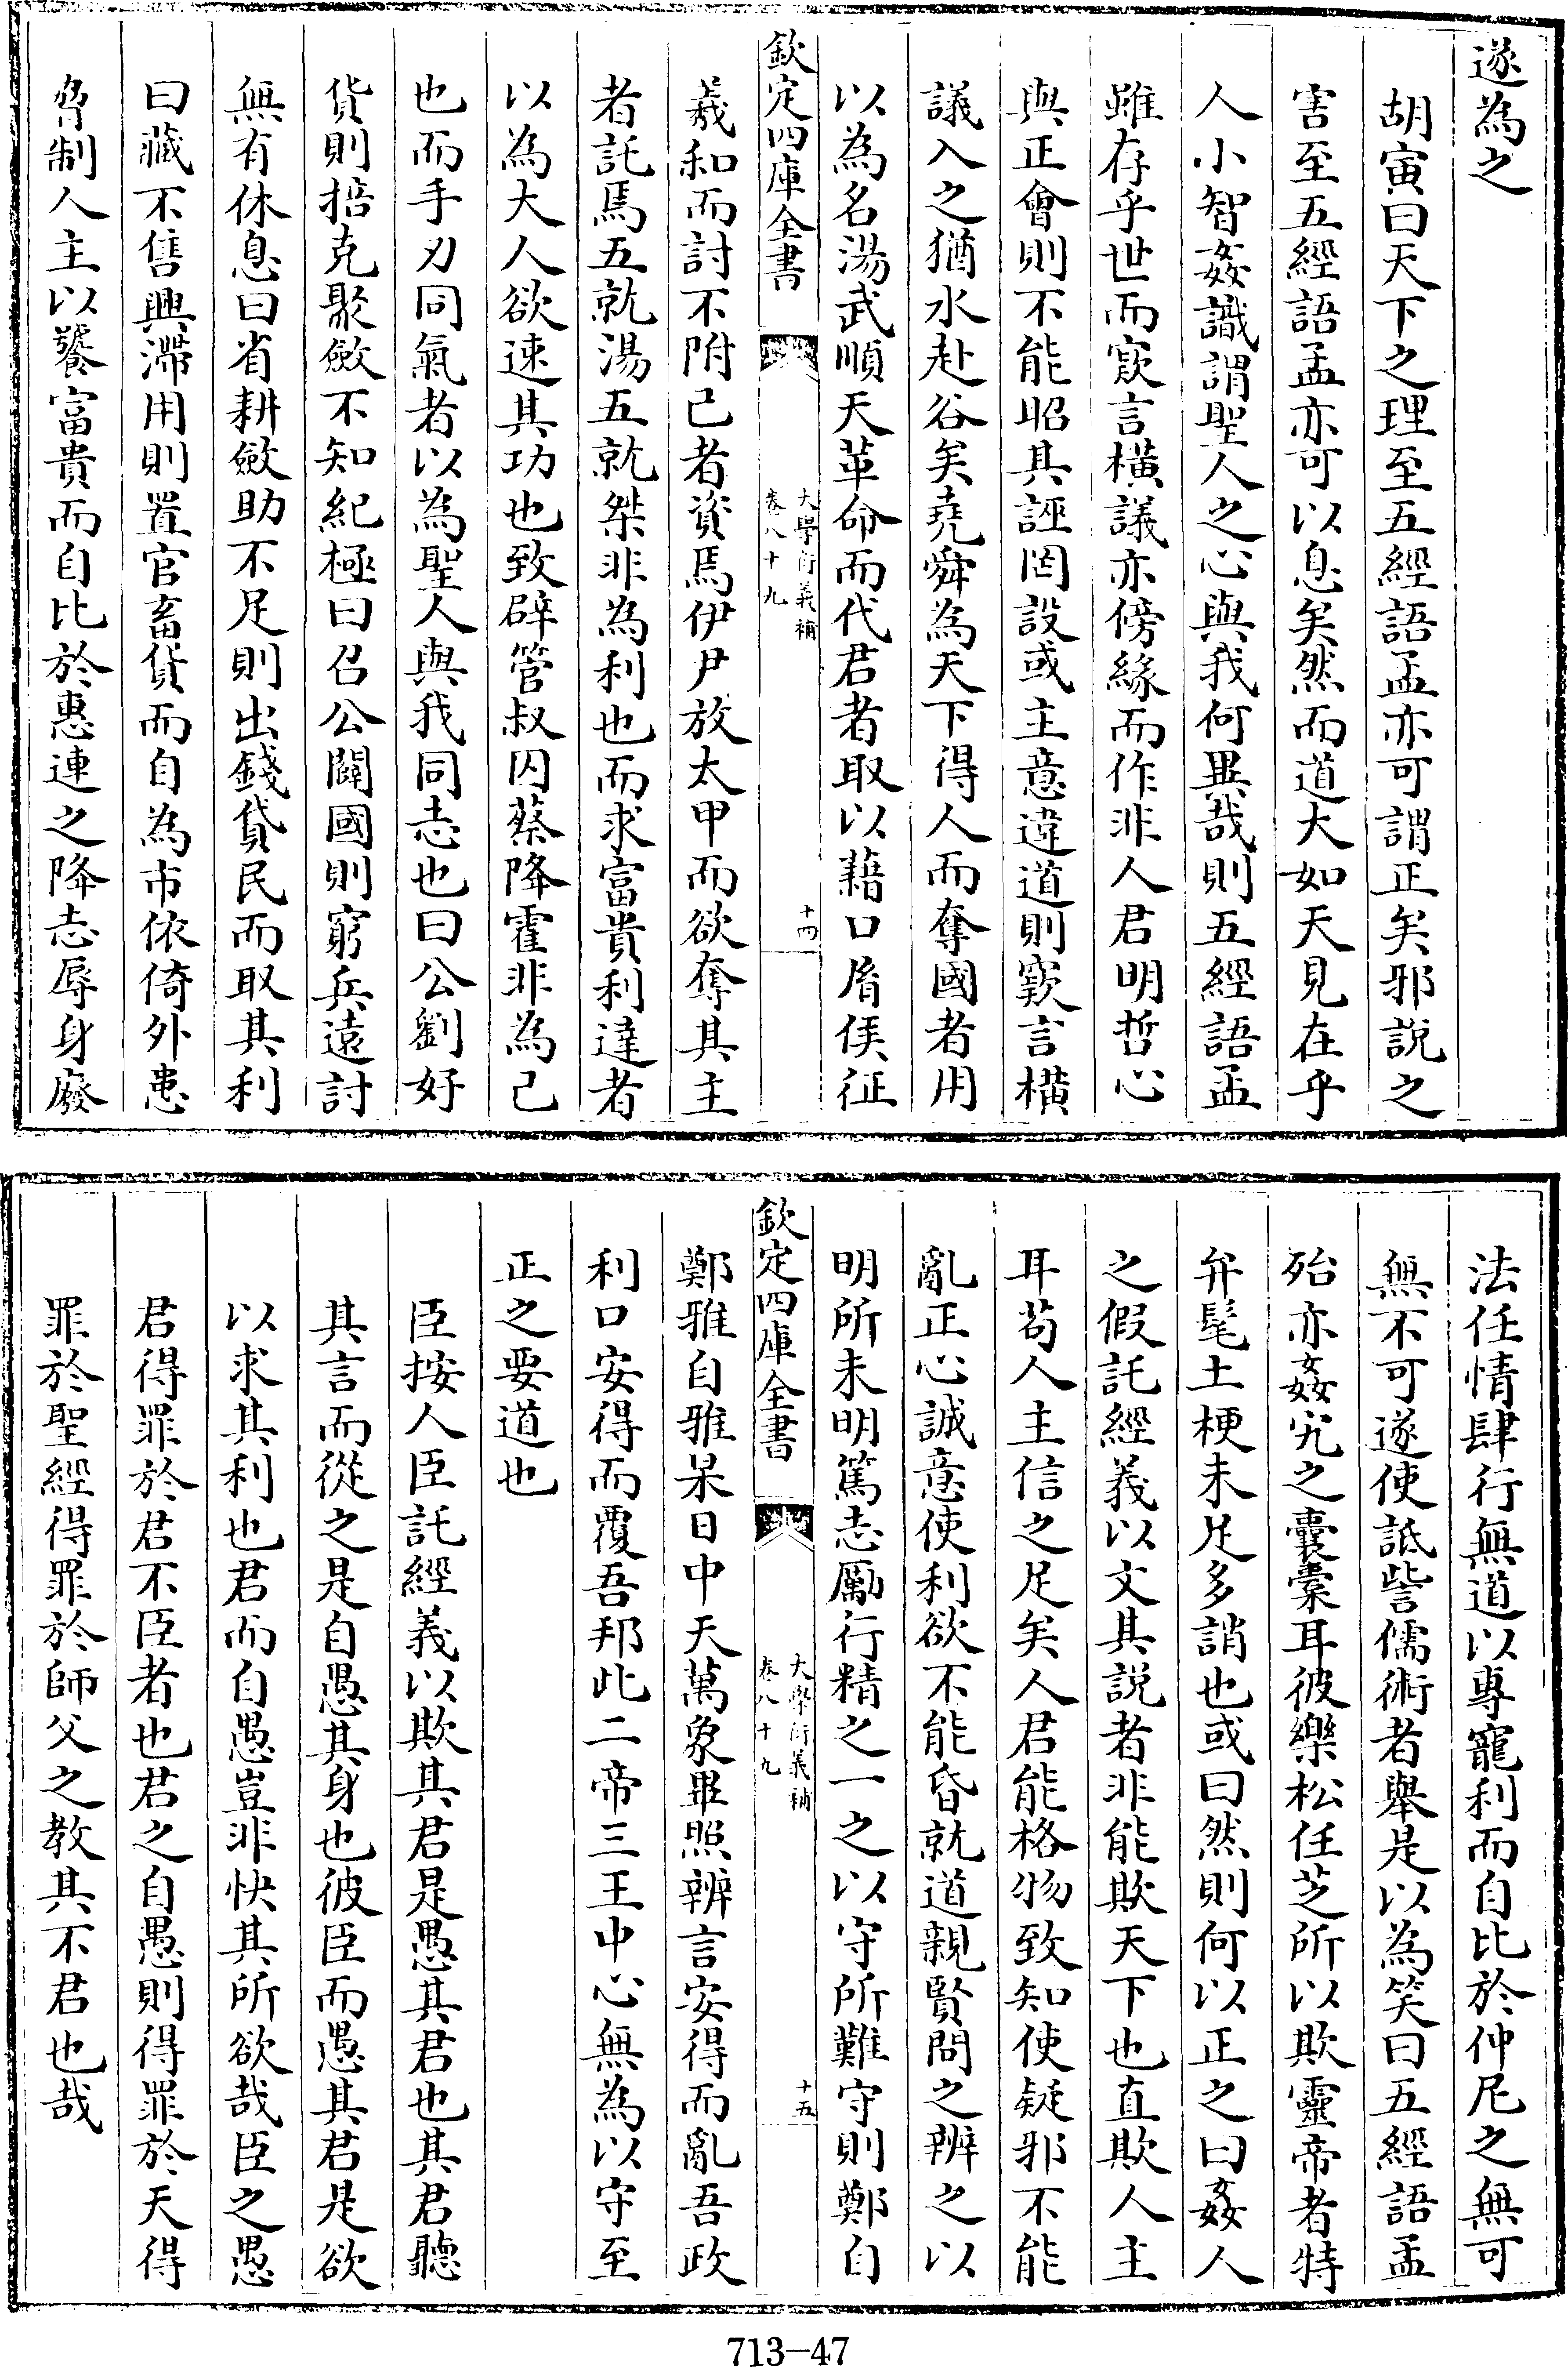 遂為之
胡寅曰天下之理至五經語孟亦可謂正矣邪說之
害至五經語孟亦可以息矣然而道大如天見在乎
人小智姦識謂聖人之心與我何異哉則五經語孟
雖存乎世而窾言橫議亦傍緣而作非人君明哲心
與正會則不能昭其誣罔設或主意違道則窾言橫
議入之猶水赴谷矣堯舜為天下得人而奪國者用
以為名湯武順天革命而代君者取以藉口胤侯征
欽定四庫全書
大學衍義補
卷八十九
十四
羲和而討不附已者資焉伊尹放太甲而欲奪其主
者託焉五就湯五就桀非為利也而求富貴利達者
以為大人欲速其功也致辟管叔囚蔡降霍非為己
也而手刃同氣者以為聖人與我同志也曰公劉好
貨則掊克聚斂不知紀極曰召公闢國則窮兵遠討
無有休息曰省耕斂助不足則出錢貸民而取其利
曰藏不售興滯用則置官畜貨而自為市依倚外患
脅制人主以饕富貴而自比於惠連之降志辱身廢
法任情肆行無道以專寵利而自比於仲尼之無可
無不可遂使詆訾儒術者舉是以為笑曰五經語孟
殆亦姦宄之囊橐耳彼樂松任芝所以欺靈帝者特
弁髦土梗未足多誚也或曰然則何以正之曰姦人
之假託經義以文其說者非能欺天下也直欺人主
耳茍人主信之足矣人君能格物致知使疑邪不能
亂正心誠意使利欲不能昏就道親賢問之辨之以
明所未明篤志勵行精之一之以守所難守則鄭自
欽定四庫全書
大學衍義補
卷八十九
十五
鄭雅自雅杲日中天萬象畢照辨言安得而亂吾政
利口安得而覆吾邦此二帝三王中心無為以守至
正之要道也
臣按人臣託經義以欺其君是愚其君也其君聽
其言而從之是自愚其身也彼臣而愚其君是欲
以求其利也君而自愚豈非快其所欲哉臣之愚
君得罪於君不臣者也君之自愚則得罪於天得
罪於聖經得罪於師父之教其不君也哉
713-47